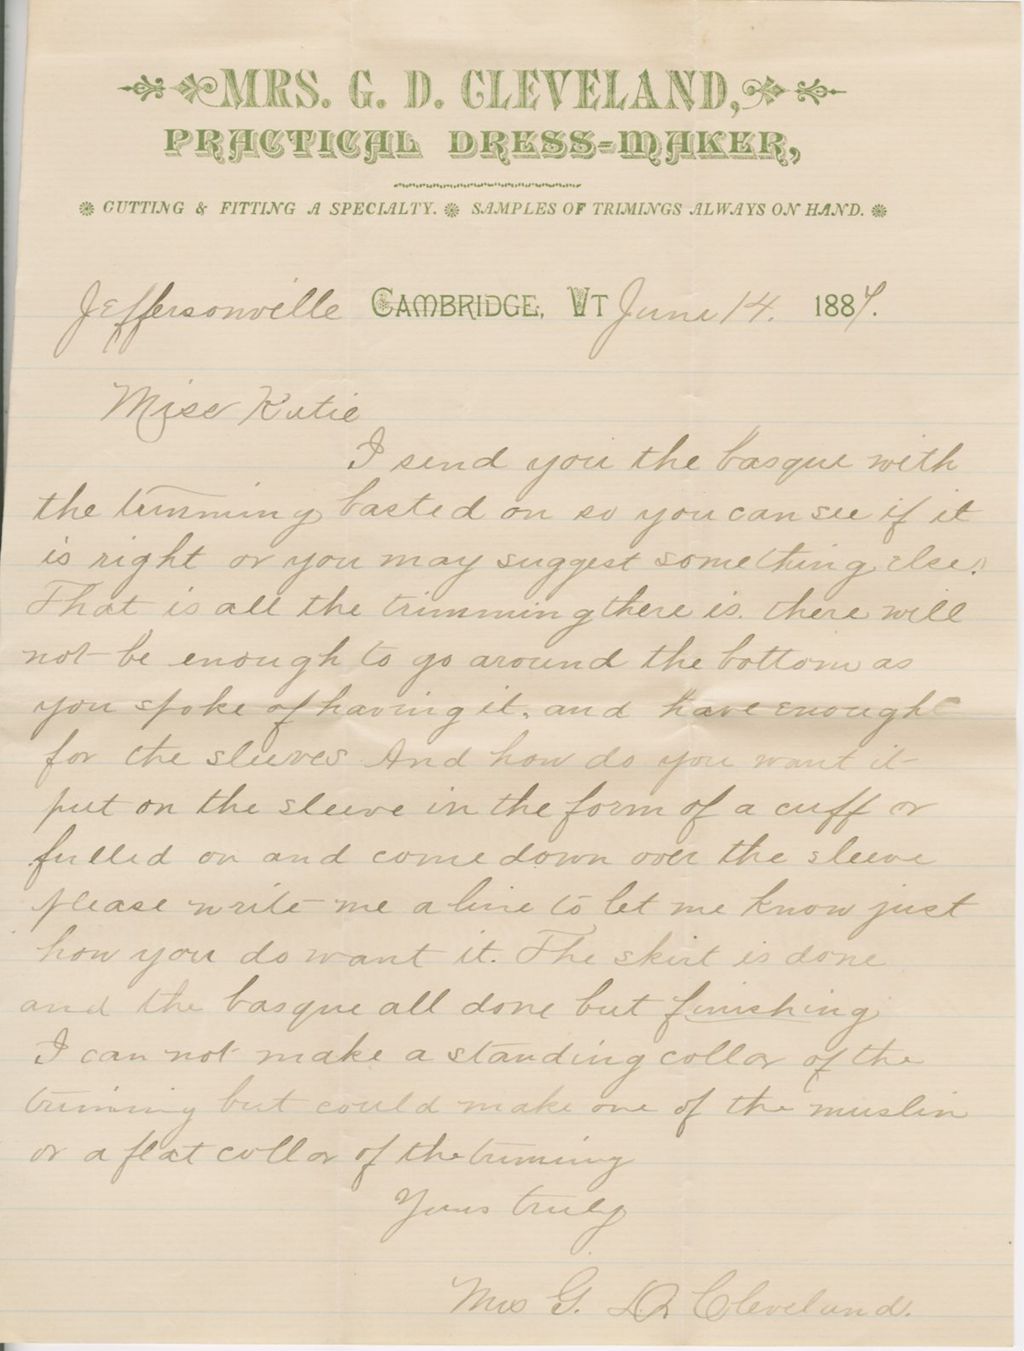 MRS. G. D. CLEVELAND,
PRACTICAL DRESS-MAKER,
CUTTING & FITTING A SPECIALTY. SAMPLES OF TRIMINGS ALWAYS ON HAND.
Jeffersonville CAMBRIDGE, VT June 14. 1887.
Miss Katie
I send you the basque with
the trimming basted on so you can see if it
is right or you may suggest something else.
That is all the trimming there is. there will
not be enough to go around the bottom as
you spoke of having it, and have enough
for the sleeves And how do you want it
put on the sleeve in the form of a cuff or
fulled on and come down over the sleeve
please write me a line to let me know just
how you do want it. The skirt is done
and the basque all done but finishing
I can not make a standing collar of the
triming but could make one of the muslin
or a flat collar of the triming
Yours truly
Mrs G. D. Cleveland.